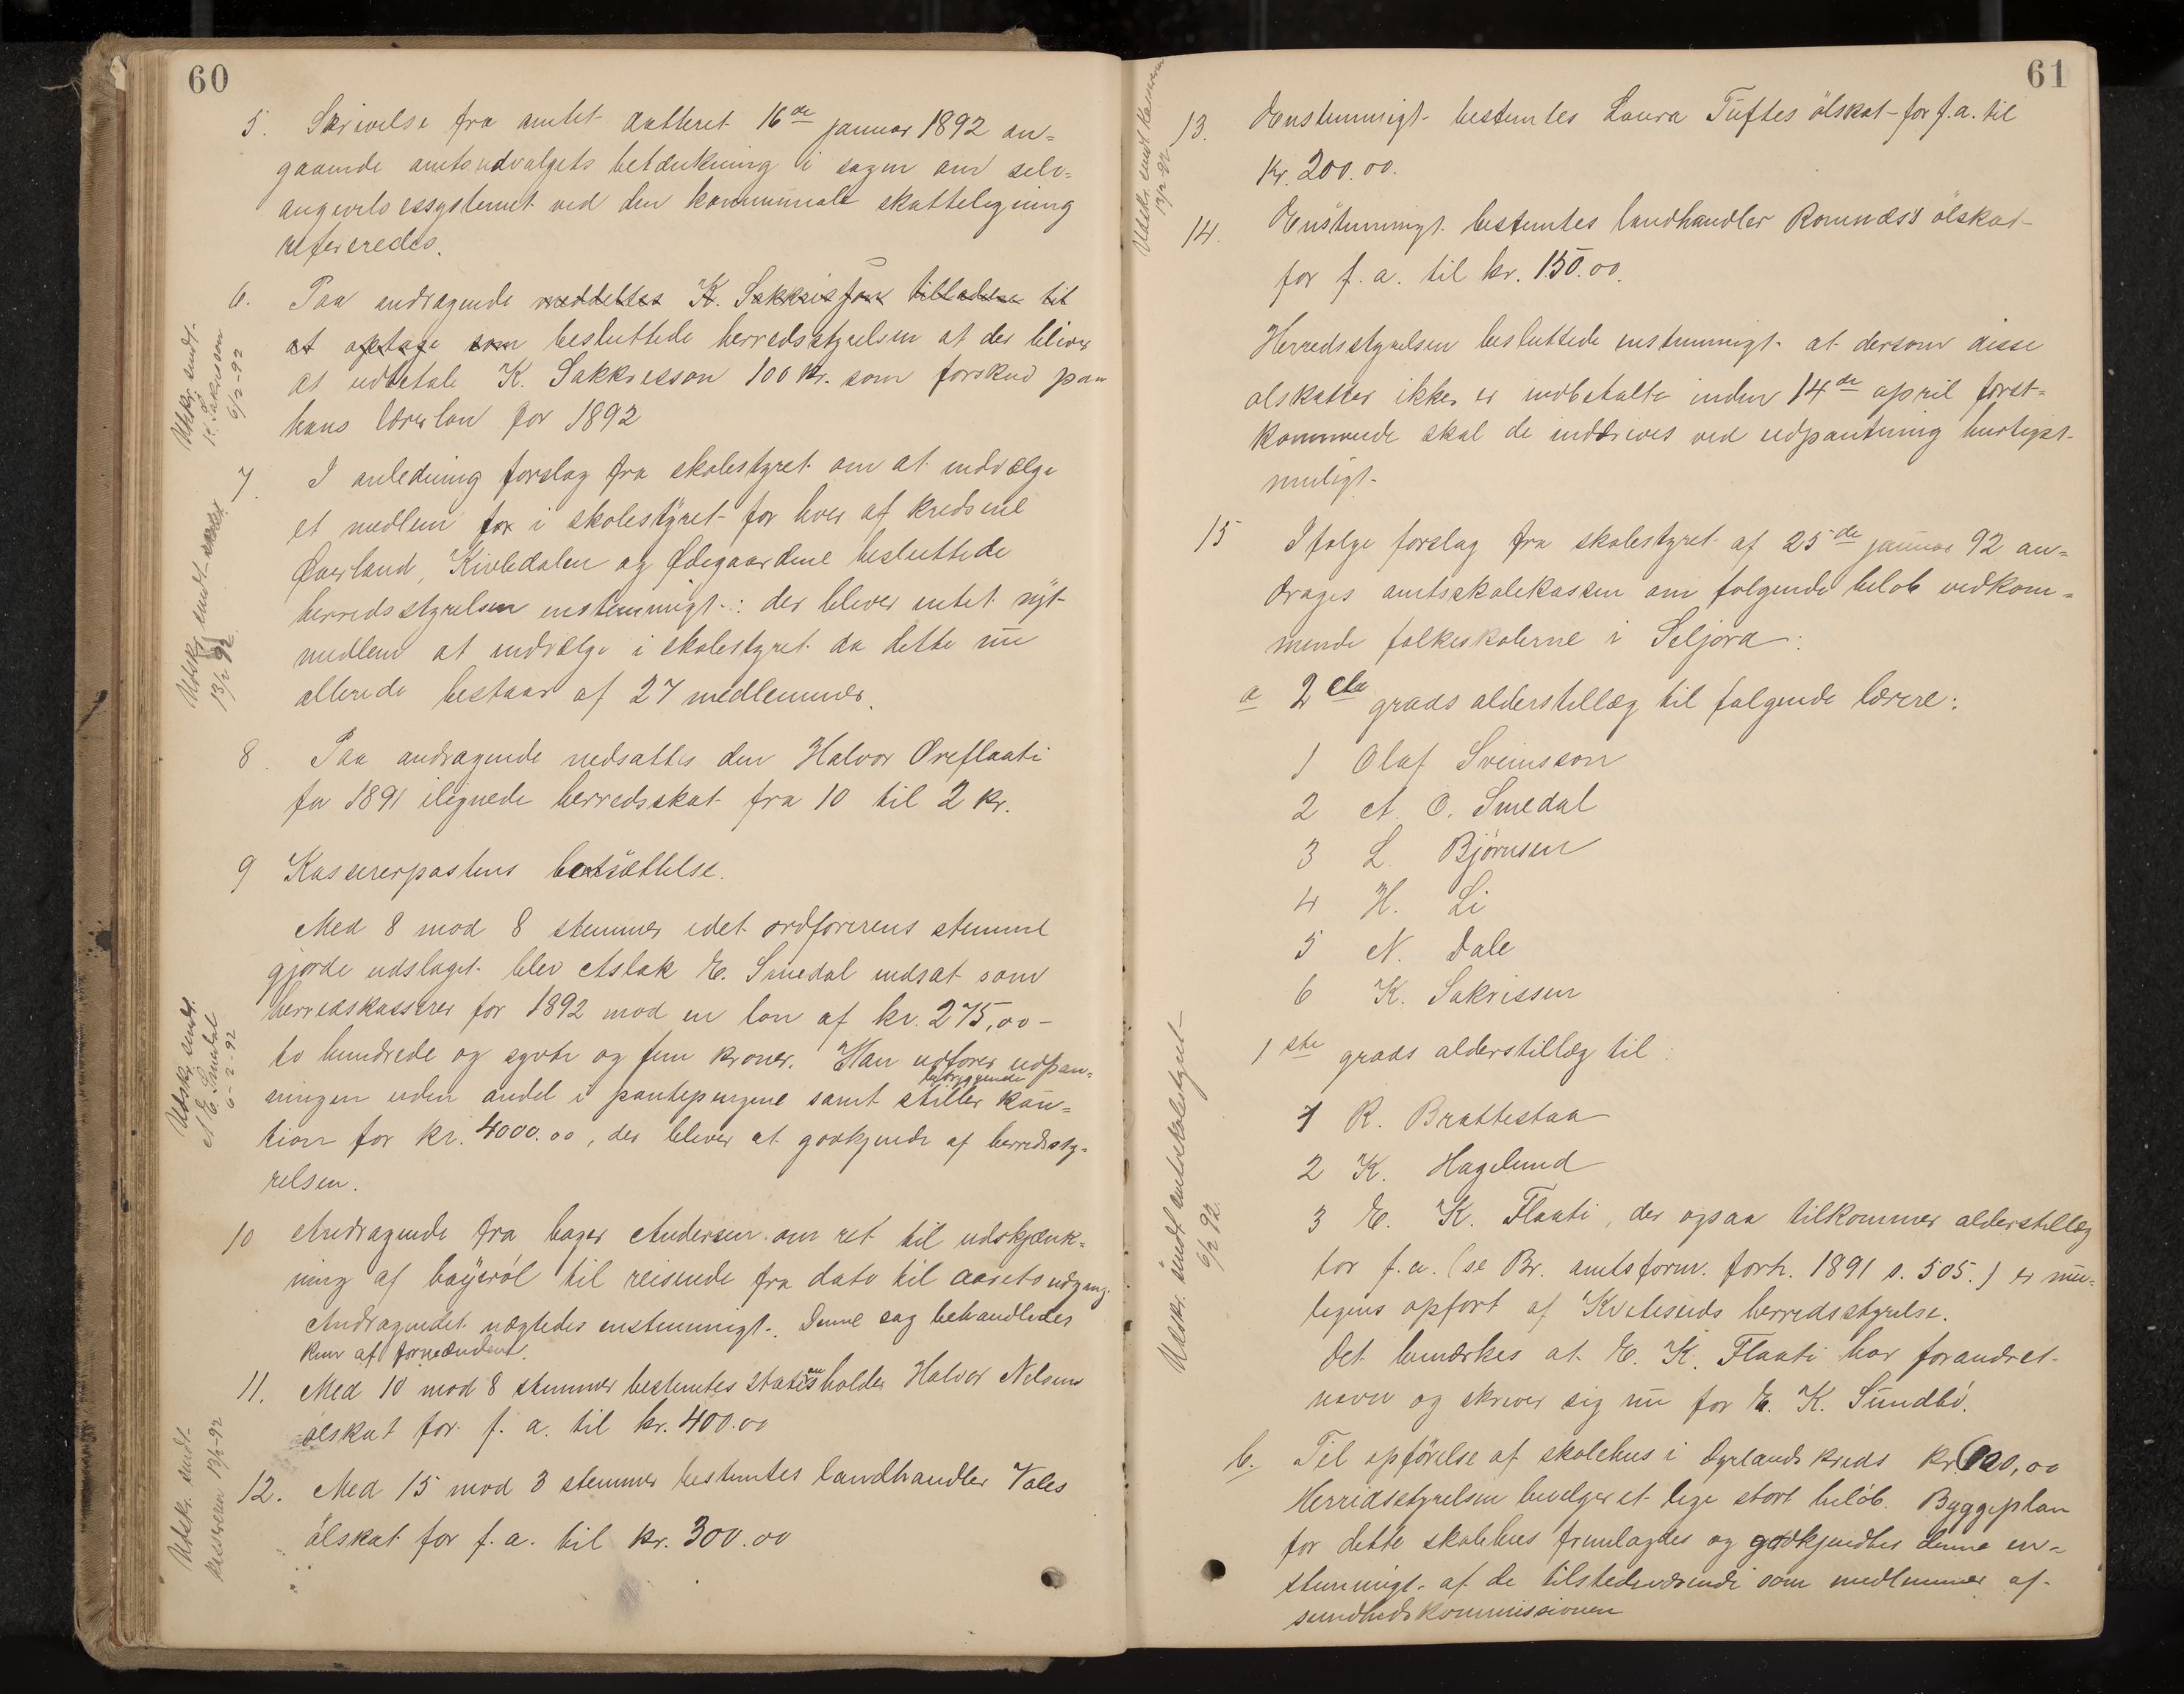 60
5. Skrivelse fra amtet datteret 16de januar 1892 an=
gaaende amtsudvalgets betænkning i sagen om selv=
angivelsessystemet ved den kommunale skatteligning
refereredes.
6. Paa andragende meddeltes K. Sakkrisson tilladelse til
at optage som besluttede herredsstyrelsen at der bliver
at udbetale K. Sakkrisson 100 kr. som forskud paa
hans lærerløn for 1892
Udskr. sendt
K. Sakrisson
6/2-92
7. I anledning forslag fra skolestyret om at indvælge
et medlem for i skolestyret for hver af kredsene
Øverland, Kivledalen og Ødegaardene besluttede
herredsstyrelsen enstemmigt: der bliver intet nyt
medlem at indvælge i skolestyret da dette nu
allerede bestaar af 27 medlemmer.
Udskr. sendt
13/2 92
8. Paa andragende nedsattes den Halvor Oreflaati
for 1891 ilignede herredsskat fra 10 til 2 kr.
9 Kassererpostens besættelse.
Med 8 mod 8 stemmer idet ordførerens stemme
gjorde udslaget blev Aslak E. Smedal indsat som
herredskasserer for 1892 mod en løn af kr. 275,00 -
to hundrede og sytti og fem kroner. Han udfører udpan=
ningen uden andel i pantepengene samt stiller betryggende kau=
tion for kr. 4000.00, der bliver at godkjende af herredssty=
relsen.
Udskr. sendt
A. E. Smedal
6-2-92
10 Andragende fra bager Andersen om ret til udskjænk=
ning af bayerøl til reisende fra dato til aarets udgang.
Andragendet nægtedes enstemmigt. Denne sag behandledes
kun af formændene.
11. Med 10 mod 8 stemmer bestemtes stationsholder Halvor Nelsens
ølskat for f. a. til kr. 400.00
12. Med 15 mod 3 stemmer bestemtes landhandler Vales
ølskat for f. a. til kr. 300.00
Udskr. sendt
kassereren 13/2-92
61
13. Enstemmigt bestemtes Laura Tuftes ølskat for f. a. til
kr. 200.00.
Udskr. sendt kassereren
13/2-92
14. Enstemmigt bestemtes landhandler Romnæs's ølskat
for f. a. til kr. 150.00.
Herredsstyrelsen besluttede enstemmigt at dersom disse
ølskatter ikke er indbetalte inden 14de april først=
kommende skal de inddrives ved udpantning hurtigst
muligt.
15 Ifølge forslag fra skolestyret af 25de januar 92 an=
drages amtsskolekassen om følgende beløb vedkom=
mende folkeskolerne i Seljord:
a 2den grads alderstillæg til følgende lærere:
1 Olaf Sveinsson
2 A. O. Smedal
3 L. Bjørnsen
4 H. Li
5 N. Dale
6 K. Sakrissen
1ste grads alderstillæg til:
1 R. Brattestaa
2 K. Hagelund
3 E. K. Flaati, der ogsaa tilkommer alderstillæg
for f. a. (se Br. amtsform. forh. 1891 s. 505.) er mu=
ligens opført af Kviteseids herredsstyrelse.
Det bemærkes at E. K. Flaati har forandret
navn og skriver sig nu for E. K. Sundbø.
Udskr. sendt amtsskolestyret
6/2 92.
b. Til opførelse af skolehus i Dyrlands kreds kr. 600,00
Herredsstyrelsen bevilger et lige stort beløb. Byggeplan
for dette skolehus fremlagdes og godkjendtes denne en=
stemmigt af de tilstedeværende som medlemmer af
sundhedskommissionen